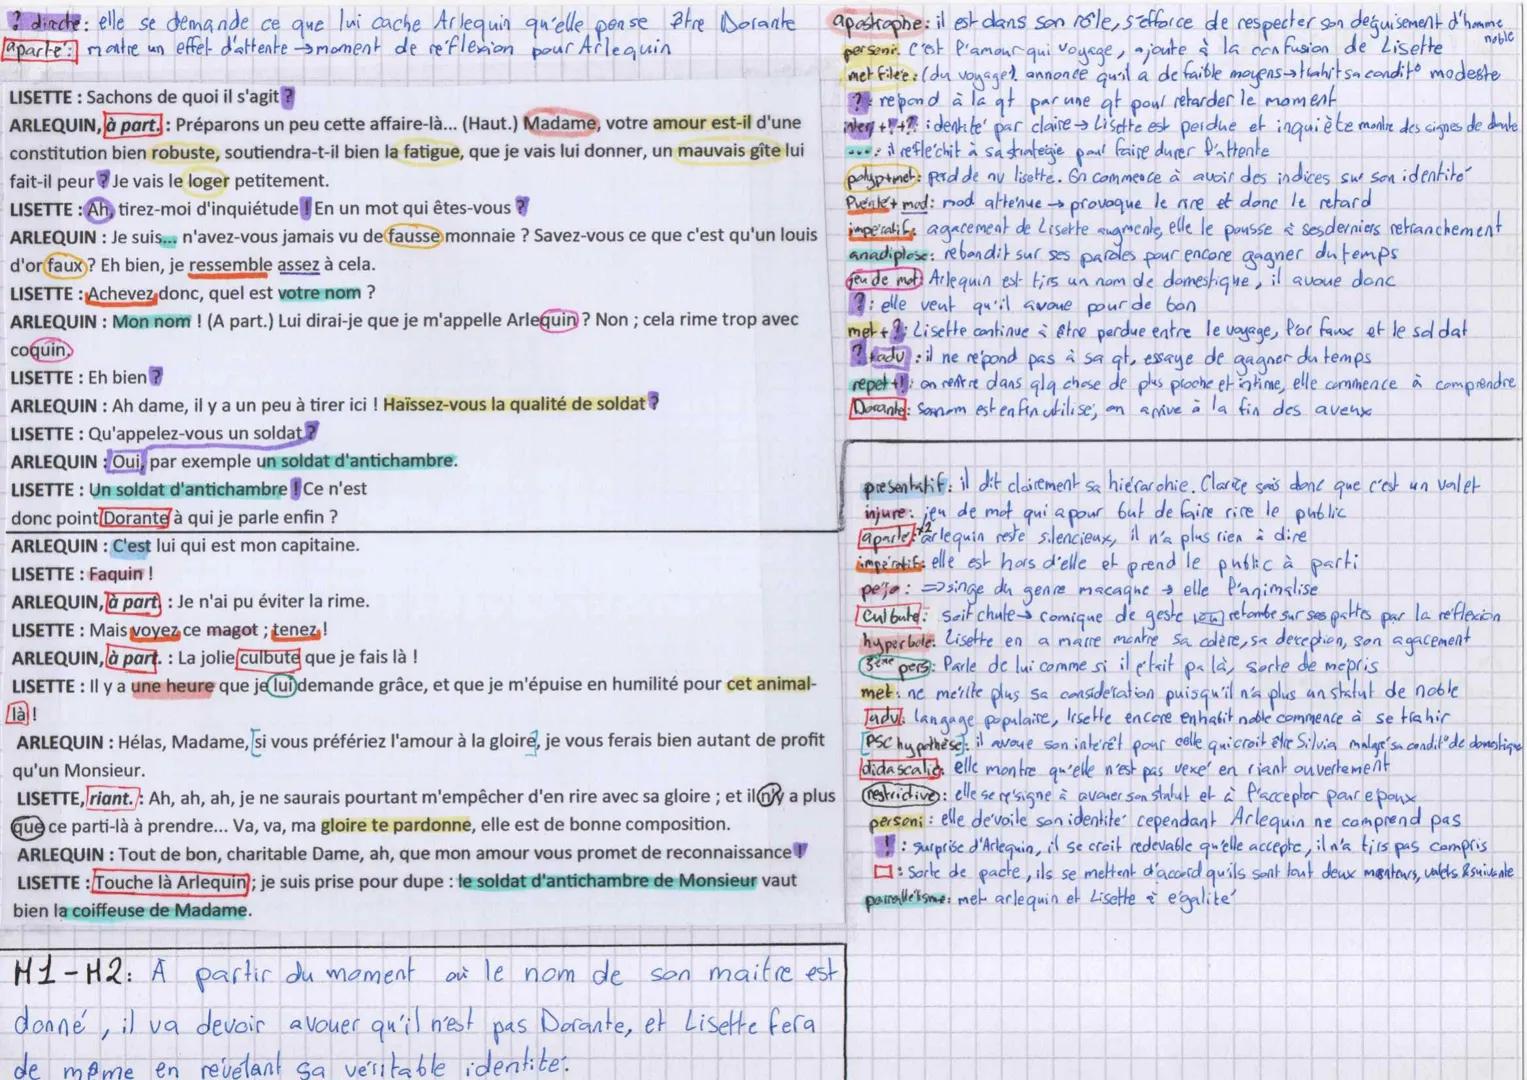 ? directe: elle se demande ce que lui cache Arlequin qu'elle pense être Dorante
aparté: montre un effet d'attente → moment de réflexion pour Arlequin
LISETTE : Sachons de quoi il s'agit ?
ARLEQUIN, à part. : Préparons un peu cette affaire-là... (Haut.) Madame, votre amour est-il d'une
constitution bien robuste, soutiendra-t-il bien la fatigue, que je vais lui donner, un mauvais gîte lui
fait-il peur ? Je vais le loger petitement.
LISETTE : Ah, tirez-moi d'inquiétude ! En un mot qui êtes-vous ?
ARLEQUIN : Je suis... n'avez-vous jamais vu de fausse monnaie ? Savez-vous ce que c'est qu'un louis
d'or faux ? Eh bien, je ressemble assez à cela.
LISETTE : Achevez donc, quel est votre nom ?
ARLEQUIN : Mon nom ! (A part.) Lui dirai-je que je m'appelle Arlequin ? Non ; cela rime trop avec
coquin.
LISETTE : Eh bien ?
ARLEQUIN : Ah dame, il y a un peu à tirer ici ! Haïssez-vous la qualité de soldat ?
LISETTE : Qu'appelez-vous un soldat ?
ARLEQUIN : Oui, par exemple un soldat d'antichambre.
LISETTE : Un soldat d'antichambre ! Ce n'est
donc point Dorante à qui je parle enfin ?
ARLEQUIN : C'est lui qui est mon capitaine.
LISETTE : Faquin !
ARLEQUIN, à part. : Je n'ai pu éviter la rime.
LISETTE : Mais voyez ce magot ; tenez !
ARLEQUIN, à part. : La jolie culbute que je fais là !
LISETTE : Il y a une heure que je lui demande grâce, et que je m'épuise en humilité pour cet animal-
là !
ARLEQUIN : Hélas, Madame, si vous préfériez l'amour à la gloire, je vous ferais bien autant de profit
qu'un Monsieur.
LISETTE, riant. : Ah, ah, ah, je ne saurais pourtant m'empêcher d'en rire avec sa gloire ; et il n'y a plus
que ce parti-là à prendre... Va, va, ma gloire te pardonne, elle est de bonne composition.
ARLEQUIN : Tout de bon, charitable Dame, ah, que mon amour vous promet de reconnaissance !
LISETTE : Touche là Arlequin ; je suis prise pour dupe : le soldat d'antichambre de Monsieur vaut
bien la coiffeuse de Madame.
M1-M2: A partir du moment où le nom de son maitre est
donné, il va devoir avouer qu'il n'est pas Dorante, et Lisette fera
de même en révélant sa véritable identité.
apostrophe: il est dans son rôle, s'efforce de respecter son déguisement d'homme noble
personi. C'est l'amour qui voyage, ajoute à la confusion de Lisette
met filée: (du voyage). annonce qu'il a de faible moyens → trahit sa condit° modeste
?: répond à la qt par une qt pour retarder le moment
interj+!+?: identité par claire → Lisette est perdue et inquiète montre des signes de doute
...: il réfléchit à sa stratégie pour faire durer l'attente
polyp+met: perd de nv lisette. On commence à avoir des indices sur son identité
+ mod: mod atténue → provoque le rire et donc le retard
impératif: agacement de Lisette augmente, elle le pousse à ses derniers retranchement
anadiplose: rebondit sur ses paroles pour encore gagner du temps
jeu de mot: Arlequin est tjrs un nom de domestique, il avoue donc
?: elle veut qu'il avoue pour de bon
met+?: Lisette continue à être perdue entre le voyage, l'or faux et le soldat
?+adv: il ne répond pas à sa qt, essaye de gagner du temps
repet+!: on rentre dans qlq chose de plus proche et intime, elle commence à comprendre
Dorante: Son nom est enfin utilisé, on arrive à la fin des aveux
présentatif: il dit clairement sa hiérarchie. Clarté donc que c'est un valet
injure: jeu de mot qui a pour but de faire rire le public
aparté x2: arlequin reste silencieux, il n'a plus rien à dire
impératif: elle est hors d'elle et prend le public à parti
péjo: => singe du genre macaque → elle l'animalise
Culbute: soit chute → comique de geste retombe sur ses pattes par la réflexion
hyperbole: Lisette en a marre montre sa colère, sa déception, son agacement
3ème pers: Parle de lui comme si il était pa là, sorte de mépris
met: ne mérite plus sa considération puisqu'il n'a plus un statut de noble
adv: langage populaire, lisette encore en habit noble commence à se trahir
PSC hypothèse: il avoue son interêt pour celle qui croit être Silvia malgré sa condit° de domestique
didascalie: elle montre qu'elle n'est pas vexé en riant ouvertement
restrictive: elle se résigne à avouer son statut et à l'accepter pour epoux
personi: elle dévoile son identité cependant Arlequin ne comprend pas
!: surprise d'Arlequin, il se croit redevable qu'elle accepte, il n'a tjrs pas compris
□: Sorte de pacte, ils se mettent d'accord qu'ils sont tout deux menteurs, valets & suivante
parallélisme: met arlequin et Lisette à égalité